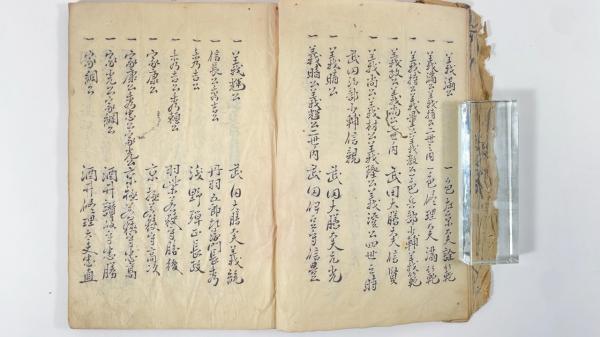 一 義満公 一色左京大夫詮範
一 義満公義持公二世之内 一色修理大夫満範
一 義持公義量公義教公三代 一色兵部少輔義範
一 義政公 二世内 武田大膳大夫信賢
一 義尚公義材公義隆公義澄公四世之時
武田治部少輔信親
一 義晴公 武田大膳大夫元光
一 義晴公義輝公二世内 武田伊豆守信豊
一 義輝公 武田大膳大夫義統
一 信長公秀吉公 丹羽五郎左衛門長秀
一 秀吉公 浅野弾正長政
一 秀吉公秀頼公 羽柴若狭守勝俊
一 家康公 京極若狭守高次
一 家康公秀忠公家光公 京極若狭守忠高
一 家光公家綱公 酒井讃岐守忠勝
一 家綱公 酒井修理大夫忠直